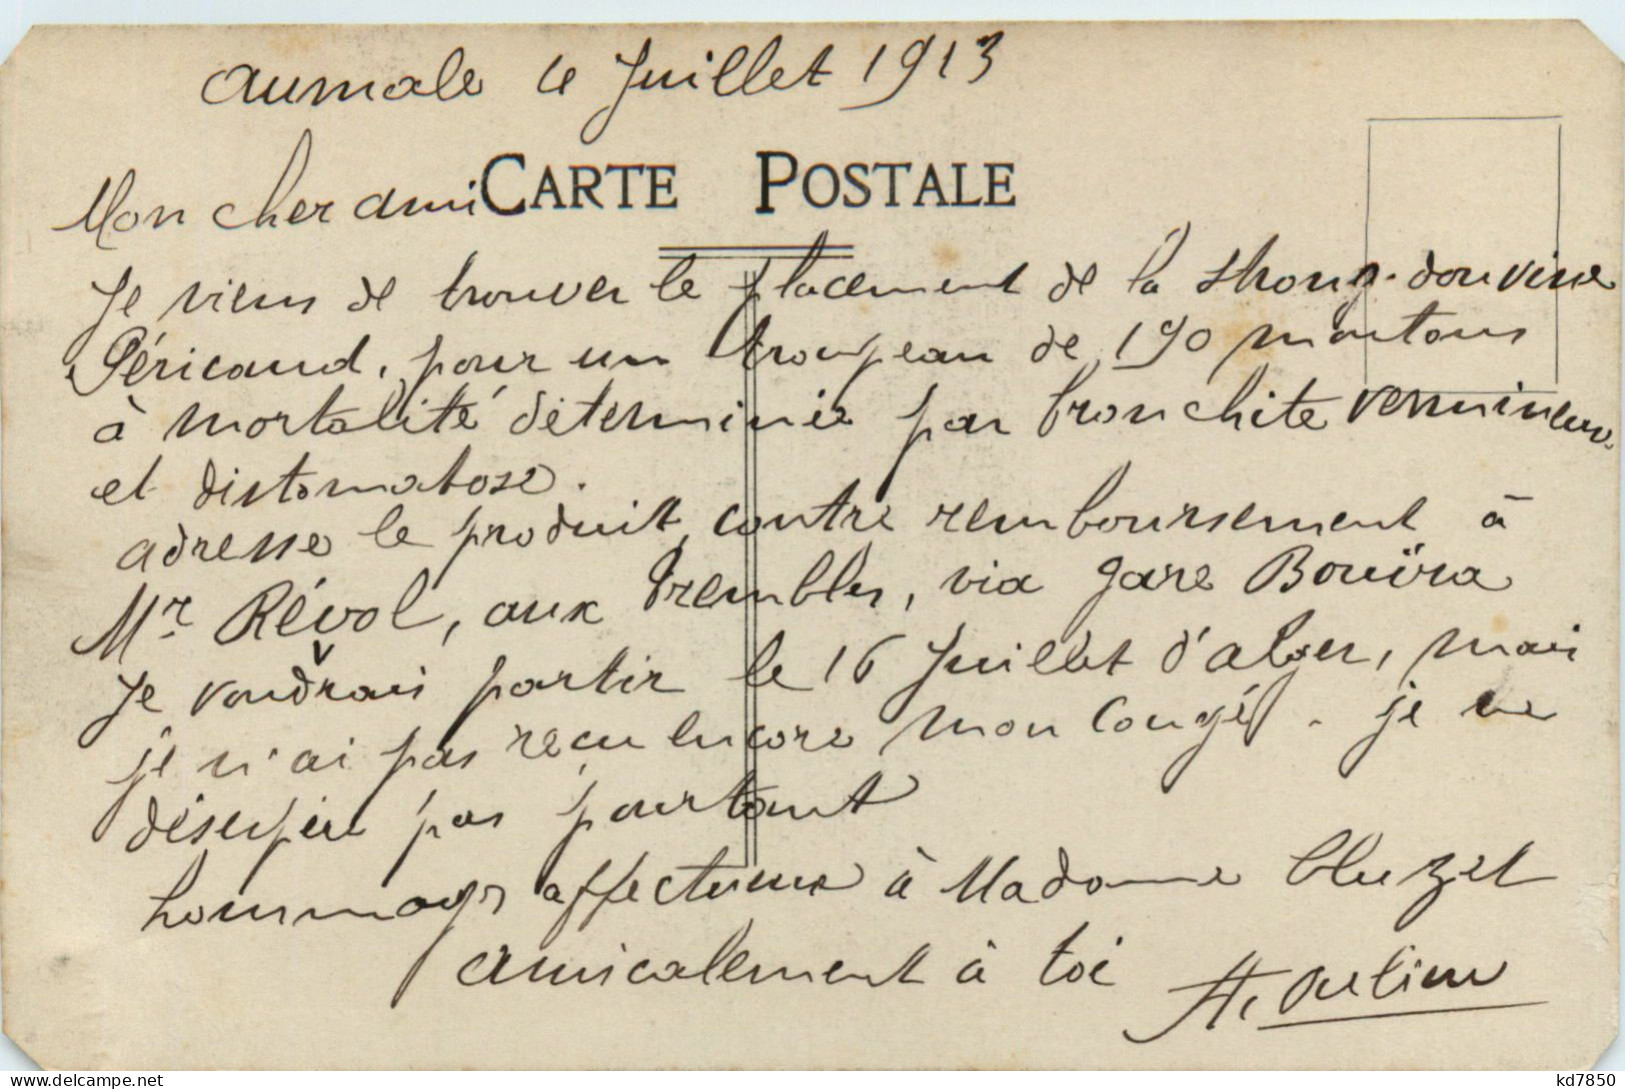 Aumale le Juillet 1913
CARTE POSTALE
Mon cher ami
Je viens de trouver le placement de la douvine
Péricaud, pour un troupeau de 190 moutons
à mortalité déterminée par bronchite vermineuse
et distomatose.
adresse le produit contre remboursement à
Mr. Révol, aux Trembles, via gare Bouïra
Je voudrais partir le 16 Juillet d'alger, mais
je n'ai pas reçu encore mon Congé. je ne
désespère pas pourtant
hommages affectueux à Madame Bluzet
amicalement à toi
kd7850